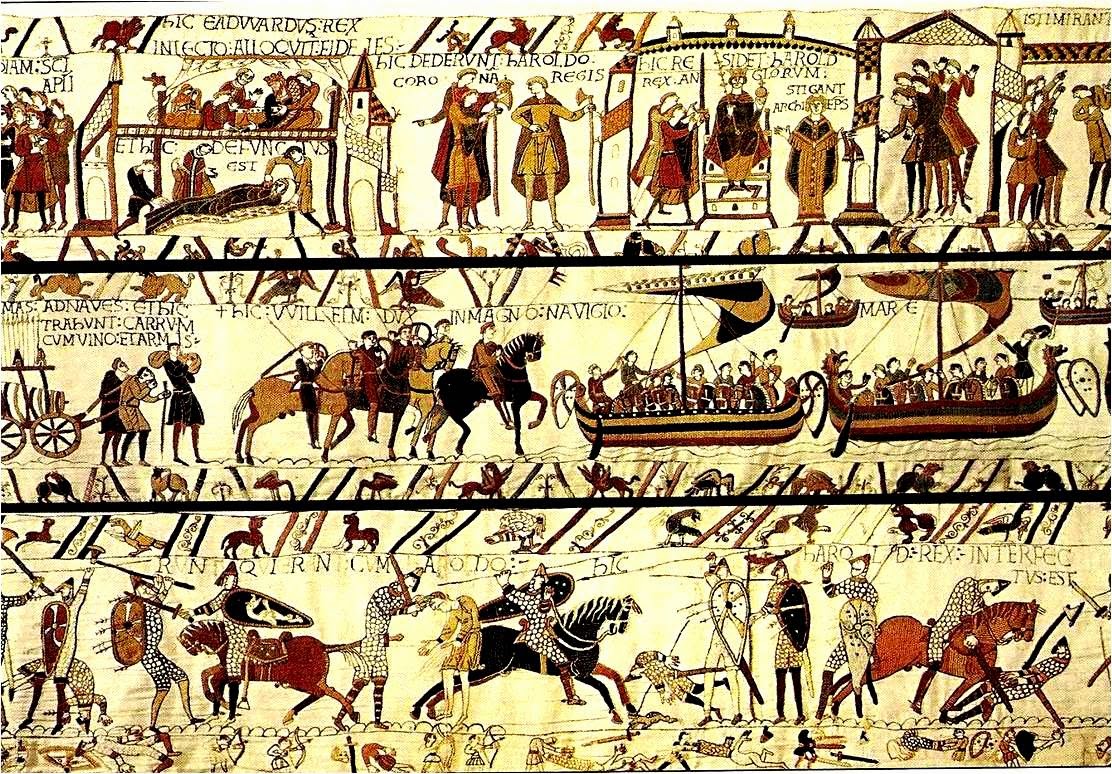 hIC EADVVARDVS: REX
INLECTO: ALLOQVIT: FIDELES:-
DIAM: SCI
APLI
ET hIC: DEFUNCTUS
EST
hIC DEDERVNT: hAROLDO:
CORONA REGIS
hIC RESIDET: hAROLD
REX: ANGLORVM:
STIGANT
ARChIEPS
ISTI MIRANT
MAS: ADNAVES: ET hIC
TRAhVNT: CARRVM
CVMVINO: ETARMIS:-
+ hIC: VVILLELM: DVX INMAGNO: NAVIGIO:
MARE
RVNT: QVI ERANT: CVM hAROLDO:-
hIC hAROLD: REX:- INTERFEC
TVS: EST